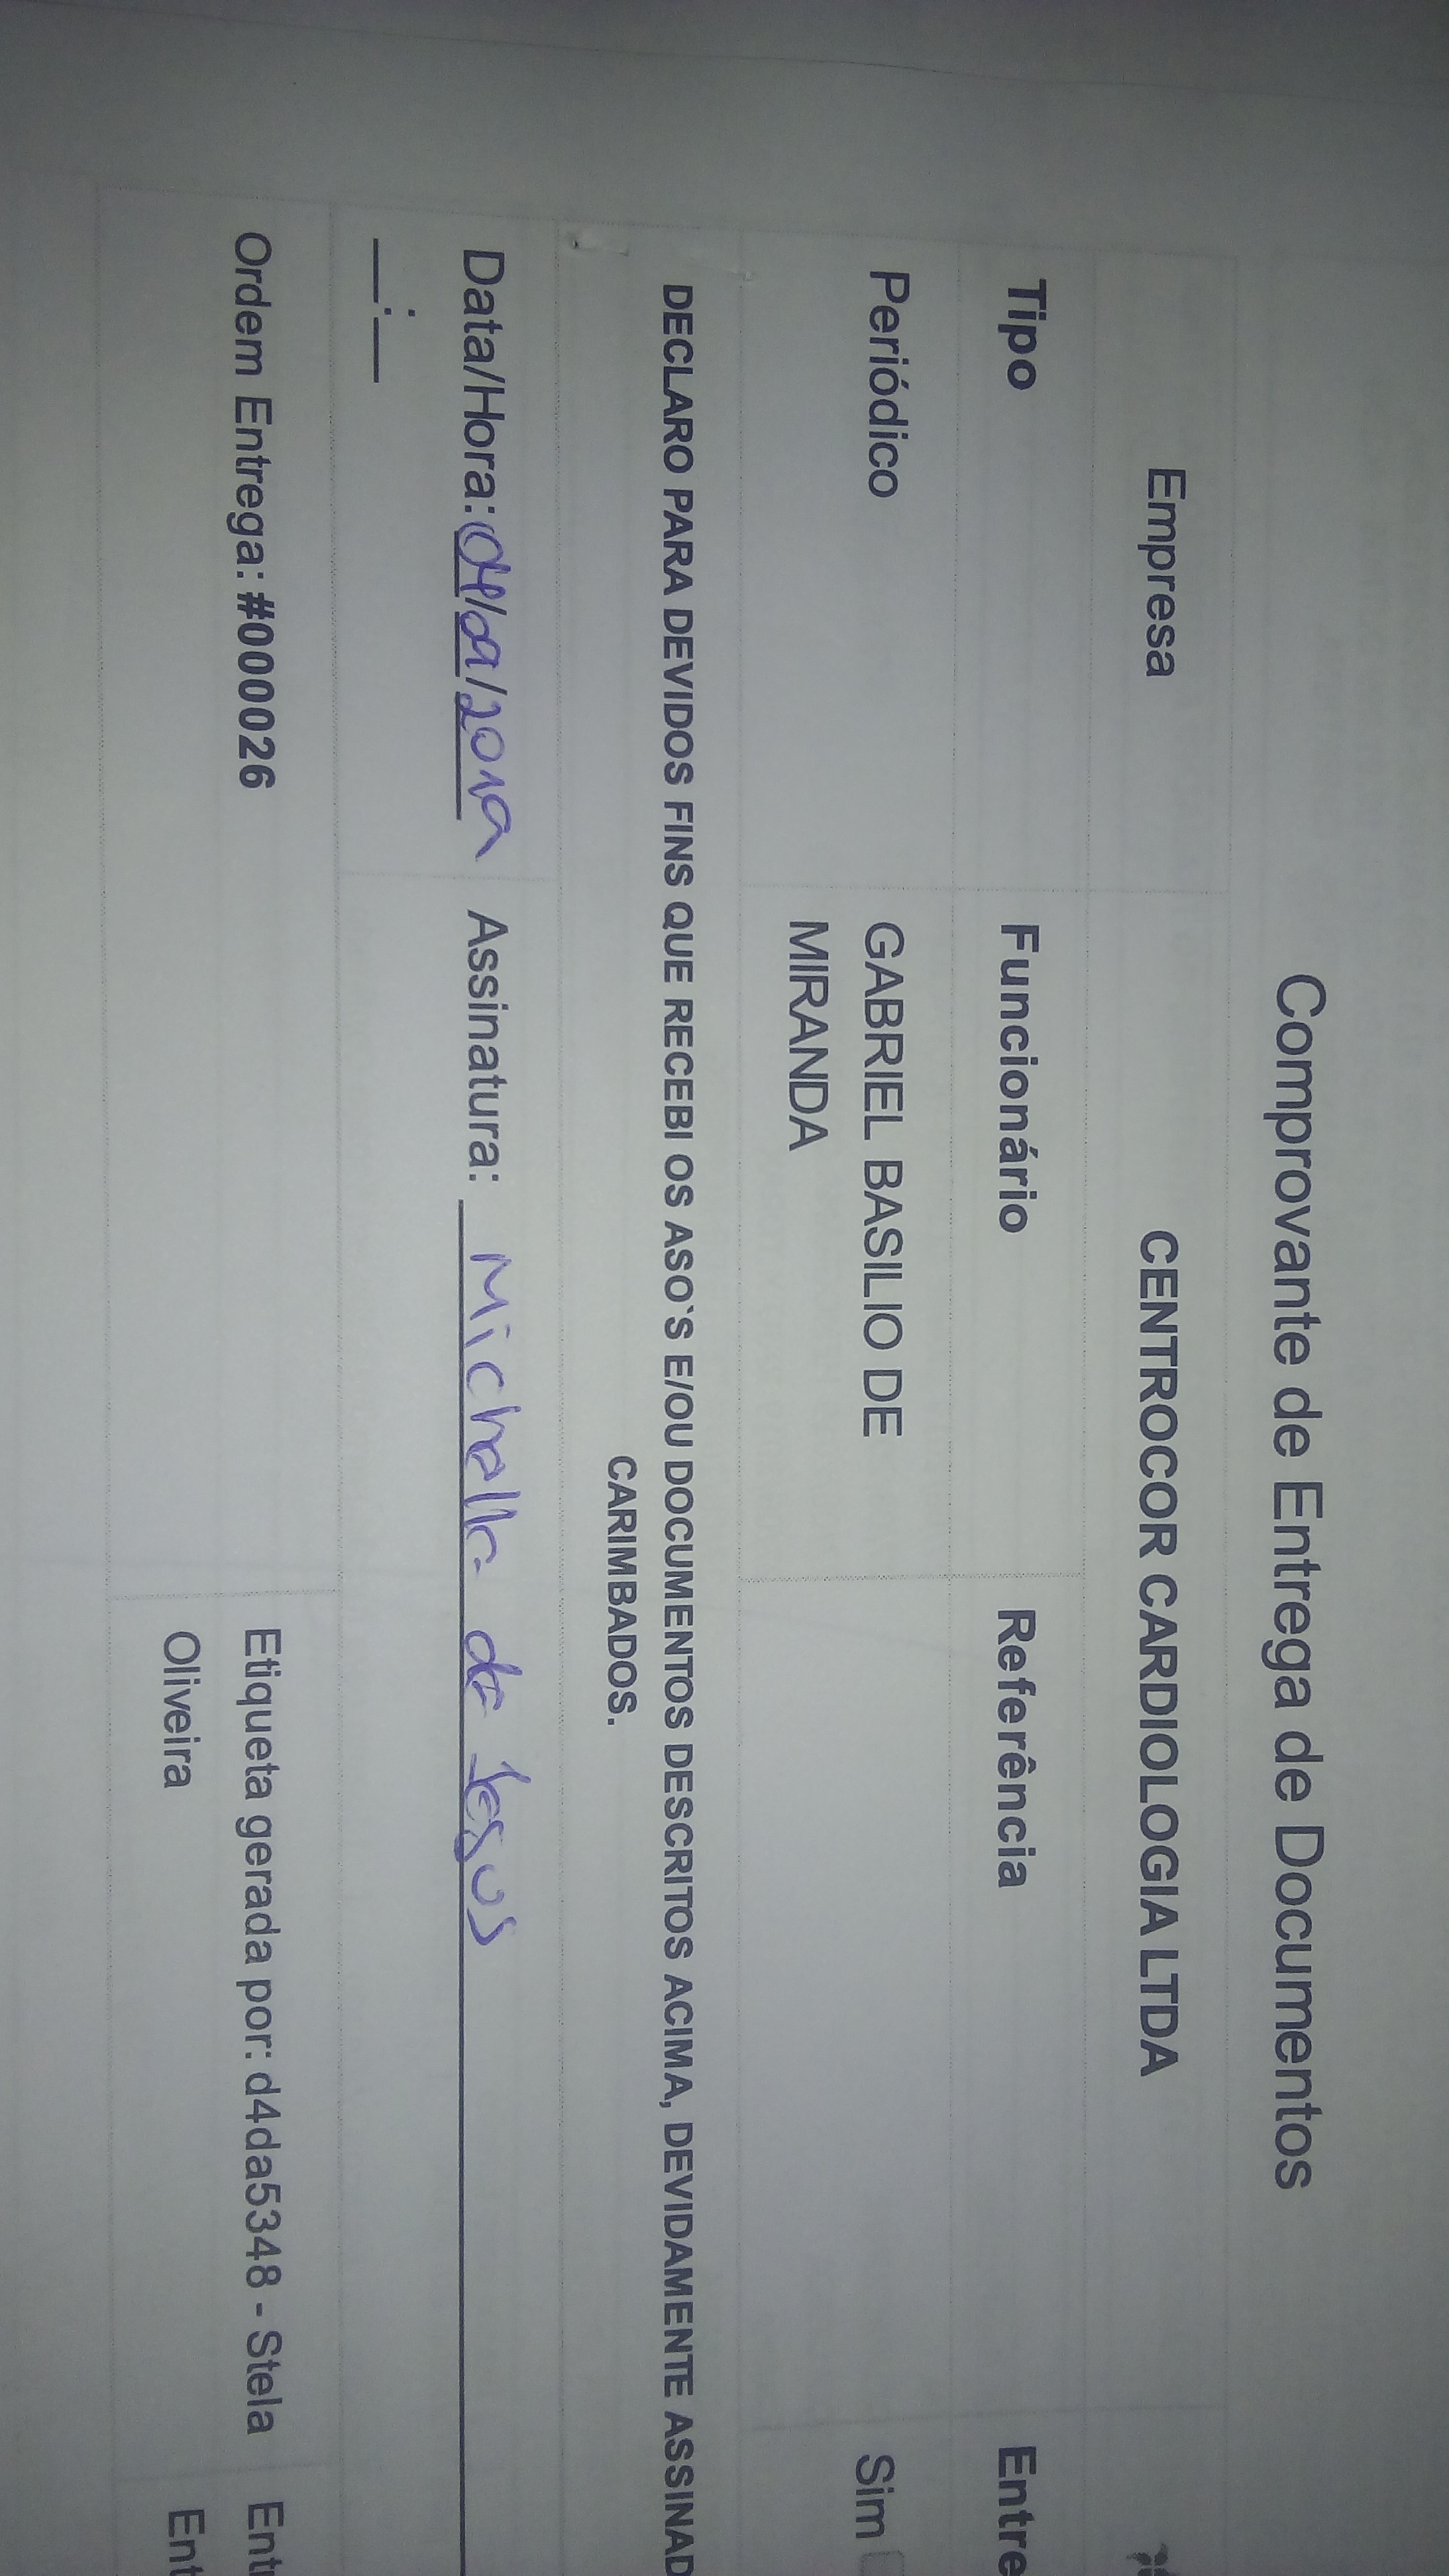 Comprovante de Entrega de Documentos
Empresa CENTROCOR CARDIOLOGIA LTDA
Tipo Funcionário Referência Entre
Periódico GABRIEL BASILIO DE Sim
MIRANDA
DECLARO PARA DEVIDOS FINS QUE RECEBI OS ASO`S E/OU DOCUMENTOS DESCRITOS ACIMA, DEVIDAMENTE ASSINAD
CARIMBADOS.
Data/Hora: / /2019 Assinatura: Michelle de Jesus
__:__
Ordem Entrega: #000026 Etiqueta gerada por: d4da5348 - Stela Entr
Oliveira Ent